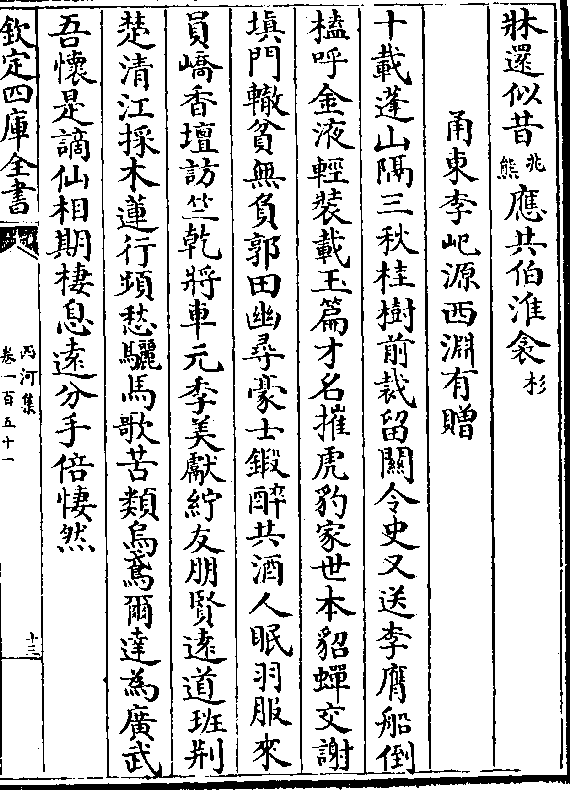 牀還似昔兆熊應共伯淮衾杉
甬東李屺源西淵有贈
十載蓬山隔三秋桂樹前裁留關令史又送李膺船倒
榼呼金液輕裝載玉篇才名摧虎豹家世本貂蟬交謝
填門轍貧無負郭田幽尋豪士鍛醉共酒人眠羽服來
員嶠香壇訪竺乾將車元季美獻紵友朋賢遠道班荆
楚清江採木蓮行頻愁驪馬歌苦類烏鳶爾達為廣武
吾懷是謫仙相期棲息遠分手倍悽然
欽定四庫全書
西河集
卷一百五十一
十三